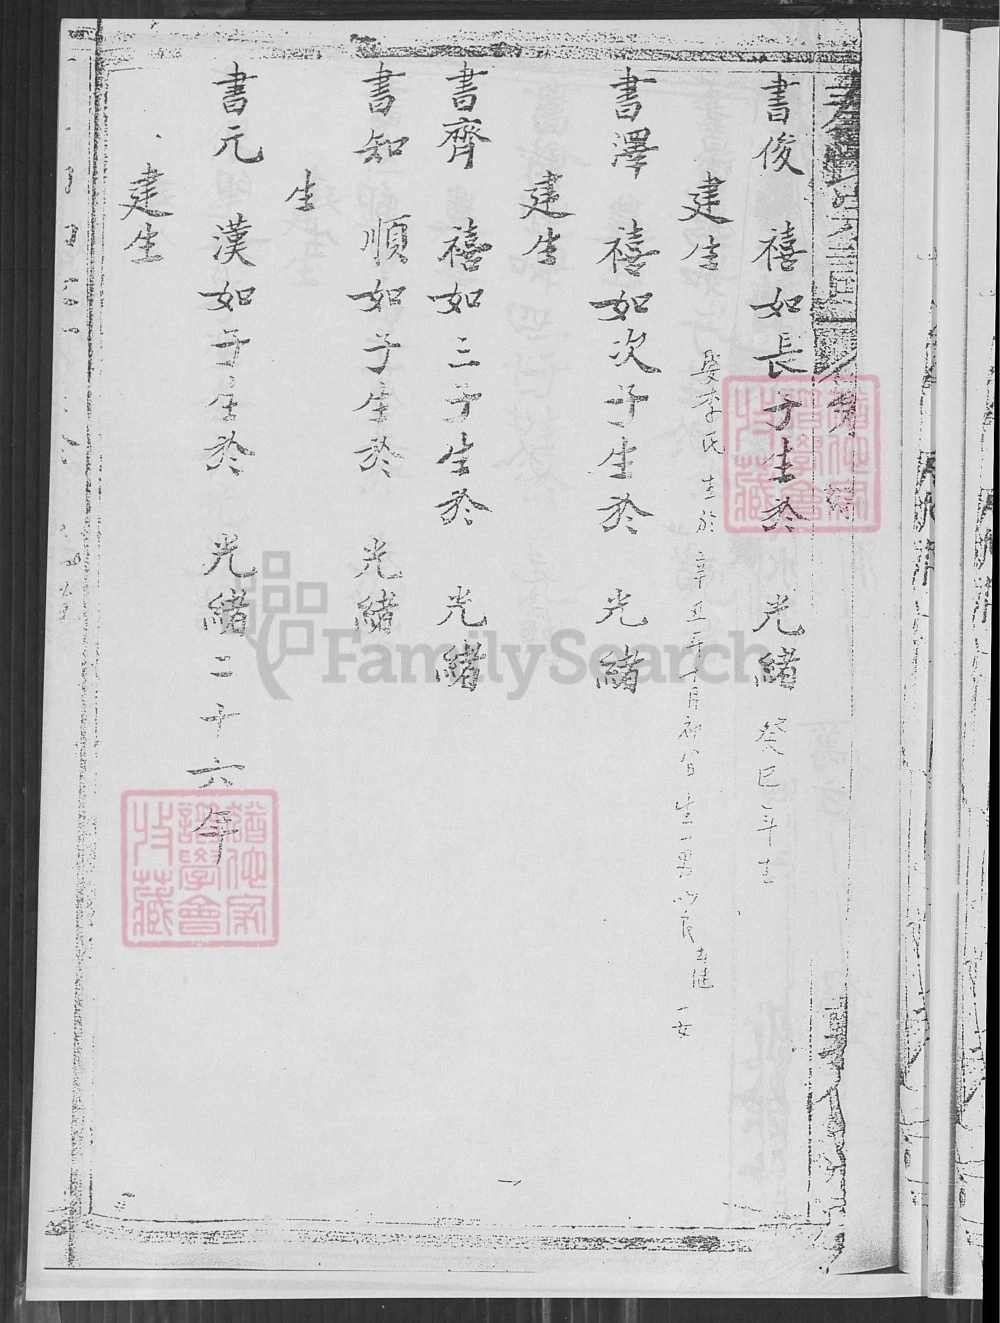 書俊 禧如長子生於 光緒 癸巳年吉
建生
娶李氏 生於 辛丑年 月初 日 生一男 一女
書澤 禧如次子生於 光緒
建生
書齊 禧如三子生於 光緒
書知 順如子生於 光緒
生
書元 漢如子生於 光緒二十六年
建生
猶他家
譜學會
收藏
猶他家
譜學會
收藏
FamilySearch